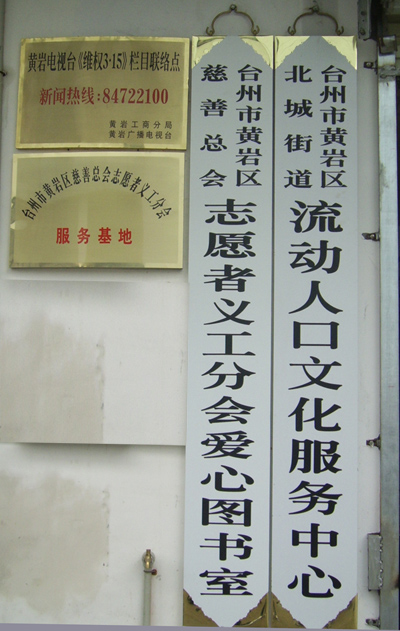 黄岩电视台《维权3·15》栏目联络点
新闻热线:84722100
黄岩工商分局
黄岩广播电视台
台州市黄岩区慈善总会志愿者义工分会
服务基地
台州市黄岩区
慈善总会
志愿者义工分会爱心图书室
台州市黄岩区
北城街道
流动人口文化服务中心